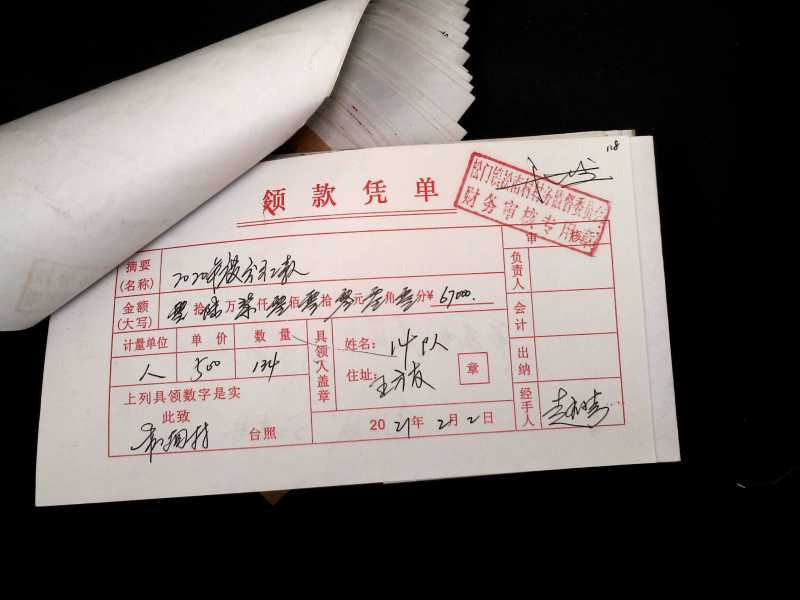 118
领款凭单
财务审核专用章
审核
摘要
(名称)
2020年股分红款
金额
(大写)
零拾陆万柒仟零佰零拾零元零角零分¥ 67000.
计量单位 单价 数量
人 500 134
具领人盖章
姓名: 14队
住址: 王
章
上列具领数字是实
此致
台照
2021年2月2日
负责人
会计
出纳
经手人